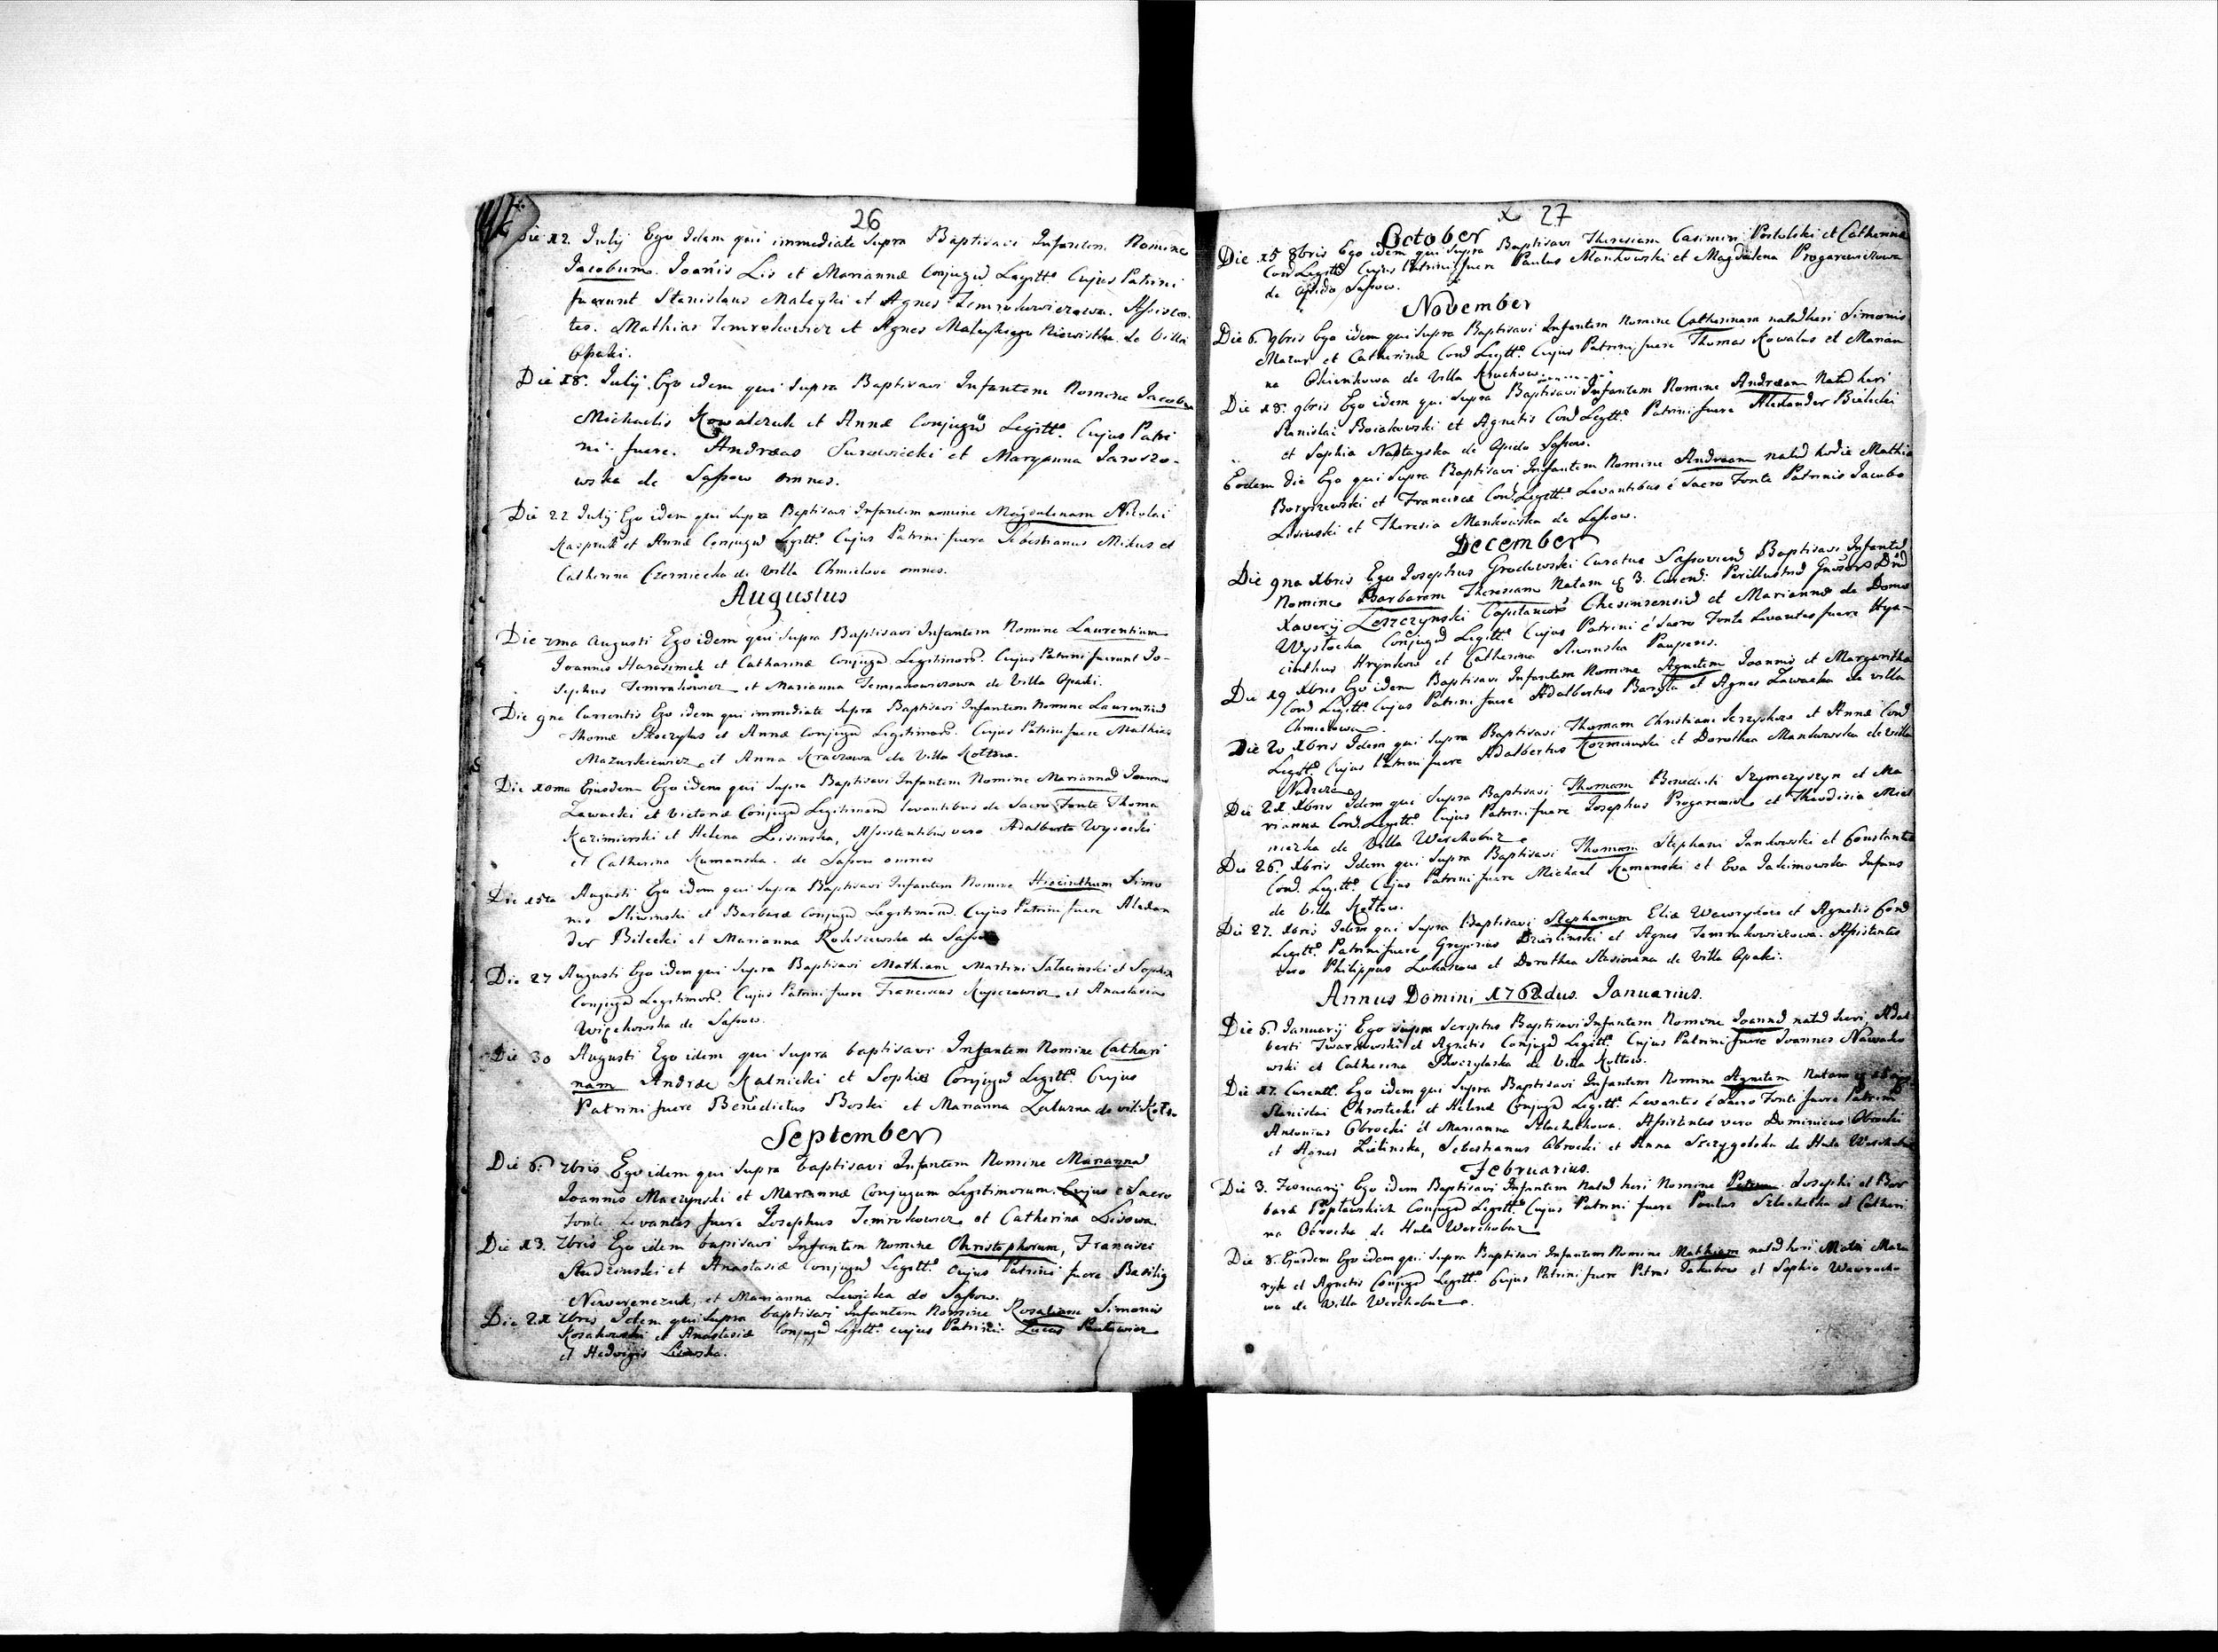 26
Die 12. Julij Ego Idem qui immediate Supra Baptisavi Infantem Nomine
Jacobum. Joanis Lis et Mariannæ Conjugũ Legitt. Cujus Patrini
fuerunt Stanislaus Maleyki et Agnes Temrokowiczowa. Assisten-
tes. Mathias Temrokowicz et Agnes de Villa
Opaki.
Die 18. Julij. Ego idem qui Supra Baptisavi Infantem Nomine Jacobum
Michaelis Kowalczuk et Annæ Conjugũ Legitt. Cujus Patri
ni fuere. Andreas Surowiecki et Maryanna Jaroszo-
wska de Sassow omnes.
Die 22 Julij Ego idem qui Supra Baptisavi Infantem nomine Magdalenam Nicolai
Kaspruk et Annæ Conjugũ Legitt. Cujus Patrini fuere Sebestianus Mikus et
Catherina Czerniecka de Villa Chmielowa omnes.
Augustus
Die 2ma Augusti Ego idem qui Supra Baptisavi Infantem Nomine Laurentium
Joannis Harasimek et Catharinæ Conjugũ Legitimorũ. Cujus Patrini fuerunt Jo-
sephus Temrokowicz et Marianna Temrokowiczowa de Villa Opaki.
Die 9na Currentis Ego idem qui immediate Supra Baptisavi Infantem Nomine Laurentiũ
Thomæ Skoczylas et Annæ Conjugũ Legitimorũ. Cujus Patrini fuere Mathias
Mazurkiewicz et Anna Kraczowa de Villa Kottow.
Die 10ma Eiusdem Ego idem qui Supra Baptisavi Infantem Nomine Mariannã Joannis
Zawacki et Victoriæ Conjugũ Legitimorũ levantibus de Sacro Fonte Thoma
Kazimierski et Helena Lisinska, Assistentibus vero Adalberto Wysocki
et Catherina Kumanska. de Sassow omnes
Die 15ta Augusti Ego idem qui Supra Baptisavi Infantem Nomine Hiacinthum Simo
nis Sliwinski et Barbaræ Conjugũ Legitimorũ. Cujus Patrini fuere Alexan
der Bilecki et Marianna Roduszewska de Sassow
Die 27 Augusti Ego idem qui Supra Baptisavi Mathiam Martini Salacinski et Sophiæ
Conjugũ Legitimorũ. Cujus Patrini fuere Franciscus Kupczowicz et Anastasia
Więckowska de Sassow.
Die 30 Augusti Ego idem qui Supra baptisavi Infantem Nomine Cathari
nam Andræ Kalnicki et Sophiæ Conjugũ Legitt. Cujus
Patrini fuere Benedictus Boski et Marianna Zaturna de vil: Kotto
September
Die 6. 7bris Ego idem qui Supra baptisavi Infantem Nomine Mariannã
Joannis Maczynski et Mariannæ Conjugum Legitimorum. Cujus e Sacro
Fonte Levantes fuere Josephus Temrokowicz et Catherina Lisowa.
Die 13. 7bris Ego idem baptisavi Infantem Nomine Christophorum, Francisci
Studzinski et Anastasiæ Conjugũ Legitt. cujus Patrini fuere Basilig
Neworenczuk, et Marianna Lewicka de Sassow.
Die 21 7bris Idem qui Supra baptisavi Infantem Nomine Rosaliam Simonis
Kosakowski et Anastasiæ Conjugũ Legitt. cujus Patrini: Lucas Pawłowicz
et Hedvigis Lisowska.
x 27
October
Die 15 8bris Ego idem qui Supra Baptisavi Theresiam Casimiri Postolski et Catherinæ
Conũ Legitt. Cujus Patrini fuere Paulus Mankowski et Magdalena Progarowiczowa
de Opido Sassow.
November
Die 6. 9bris Ego idem qui Supra Baptisavi Infantem Nomine Catherinam natã heri Simonis
Mazur et Catherinæ Conũ Legitt. Cujus Patrini fuere Thomas Kowalus et Marian
na Okienkowa de Villa Kruchow.
Die 18. 9bris Ego idem qui Supra Baptisavi Infantem Nomine Andream Natũ heri
Stanislai Boiakowski et Agnetis Conũ Legitt. Patrini fuere Alexander Bielecki
et Sophia de Opido Sassow.
Eodem die Ego qui Supra Baptisavi Infantem Nomine Andream natũ hodie Mathia
Boryszewski et Francisca Conũ Legitt. Levantibus é Sacro Fonte Patrinis Jacobo
Lisinski et Theresia Mankowska de Sassow.
December
Die 9na Xbris Ego Josephus Grodowski Curatus Sassoviensũ Baptisavi Infantẽ
Nomine Barbaram Theresiam Natam 3. Curenũ: Perillustriũ Dnũ
Xaverij Leszczynski Capitaneorũ et Mariannæ de Domo
Wysłocka Conjugũ Legitt. Cujus Patrini é Sacro Fonte Levantes fuere Hya-
cinthus Hrynkow et Catherina Sliwinska Pauperes.
Die 19 Xbris Ego idem Baptisavi Infantem Nomine Agnetem Joannis et Margaritha
Conũ Legitt. Cujus Patrini fuere Adalbertus Baryła et Agnes Zawacka de villa
Chmielowa.
Die 20 Xbris Idem qui Supra Baptisavi Thomam Christiani et Annæ Conũ
Legitt. Cujus Patrini fuere Adalbertus Kozminski et Dorothea Mankowska de villa
Die 21 Xbris Idem qui Supra Baptisavi Thomam Benedicti Szymczyszyn et Ma
riannæ Conũ Legitt. Cujus Patrini fuere Josephus Progarowicz et Theodisia Miel
niczka de Villa Werchobuz
Die 26. Xbris Idem qui Supra Baptisavi Thomam Stephani Jankowski et Constantia
Conũ. Legitt. Cujus Patrini fuere Michael Kumanski et Eva Jakimowska Infans
de Villa Kottow.
Die 27. Xbris Idem qui Supra Baptisavi Stephanum Eliæ Wawryków et Agnetis Conũ
Legitt. Patrini fuere Gregorius et Agnes Temrokowiczowa. Assistentes
vero Philippus Lukaszow et Dorothea Stasiowna de Villa Opaki.
Annus Domini 1762dus. Januarius.
Die 6. Januarij Ego supra Scriptus Baptisavi Infantem Nomine Joannũ natũ heri, Adal
berti Twardowski et Agnetis Conjugũ Legitt. Cujus Patrini fuere Joannes Nawako
wski et Catherina Skoczylaska de Villa Kottow.
Die 17. Curentt. Ego idem qui Supra Baptisavi Infantem Nomine Agnetem Natam
Stanislai Chrostecki et Helenæ Conjugũ Legitt. Levantes é Sacro Fonte fuere Patrini
Antonius Obrocki et Marianna Szlachetkowa. Assistentes vero Dominicus Obrocki
et Agnes Zielinska, Sebestianus Obrocki et Anna Szczygelska de Huta Werchobuz
Februarius.
Die 3. Februarij Ego idem Baptisavi Infantem Natũ heri Nomine Petrum Josephi et Bar
baræ Popławskich Conjugũ Legitt. Cujus Patrini fuere Paulus Szlachetka et Catheri
na Obrocka de Huta Werchobuz
Die 8. Eiusdem Ego idem qui Supra Baptisavi Infantem Nomine Mathiam natũ heri
et Agnetis Conjugũ Legitt. Cujus Patrini fuere Petrus Jakubow et Sophia Wawrocho
wa de Villa Werchobuz.